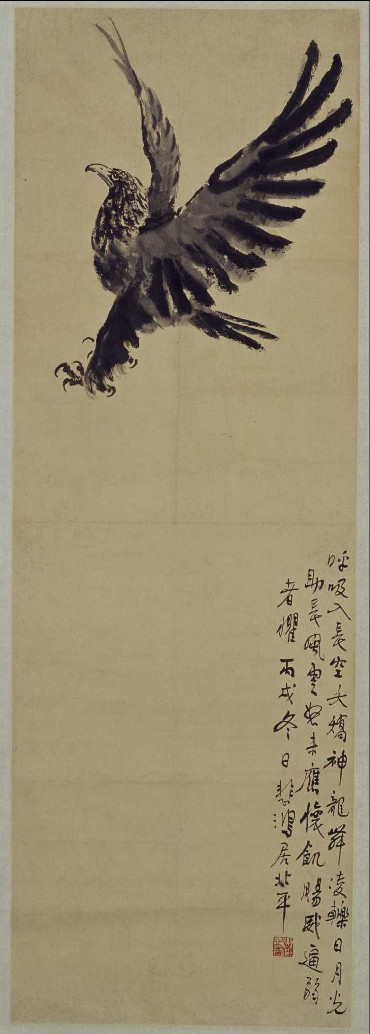 呼吸入長空夭矯神龍舞淩轢日月光
助長風雲怒未應懷飢腸威逼弱
者懼 丙戌冬日悲鴻居北平